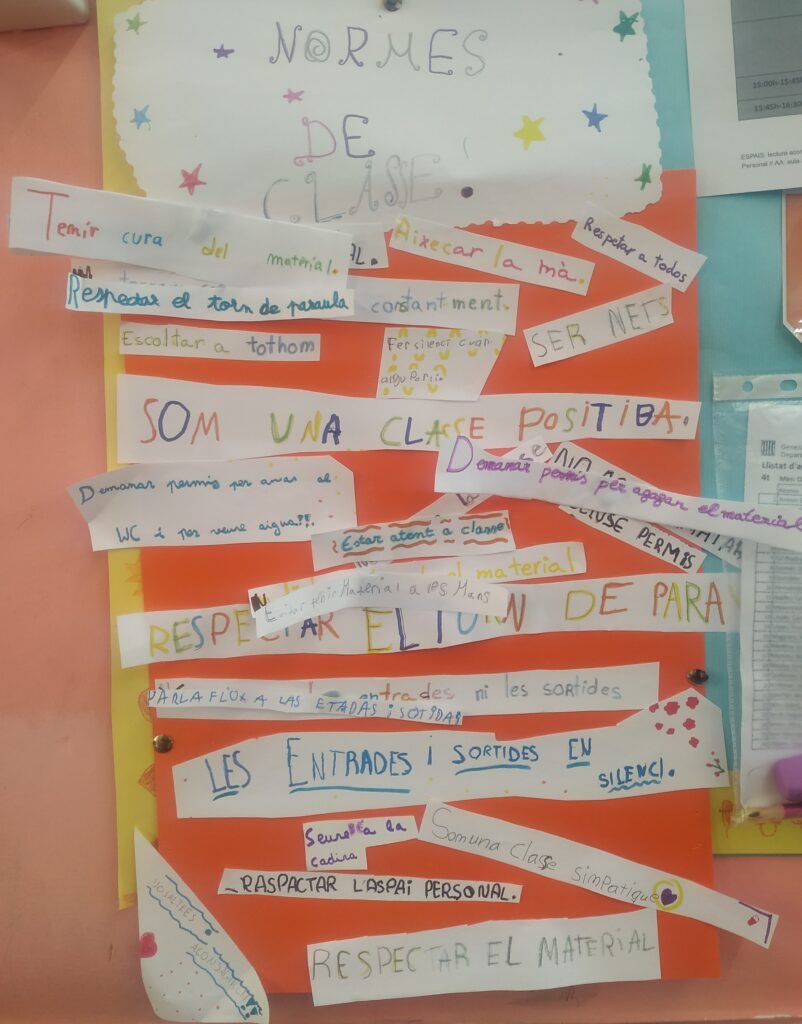 NORMES
DE
CLASSE!
15:00h-15:45h
15:45h-16:30
ESPAIS: lectura
Personal // AA: aula
Temir cura del material.
AL.
Aixecar la mà.
Respetar a todos
Respectar el torn de paraula
constantment.
Escoltar a tothom
Fer silenci cuan
algu Parli.
SER NETS
SOM UNA CLASSE POSITIBA.
Demanar permis per anar al
WC i per veure aigua!!!
Demanar permis per agagar el material
Estar atent a classe
PERMIS
material
Evitar tenir Material a les Mans
RESPECTAR EL TORN DE PARA
entrades ni les sortides
PARLA FLUX A LAS ETADAS i SOTIDAS
LES ENTRADES i SORTIDES EN
SILENCI.
Seure a la
cadira
Som una Classe Simpatique
RASPACTAR L'ASPAI PERSONAL.
NOSALTRES
RESPECTAR EL MATERIAL
Llistat d'a